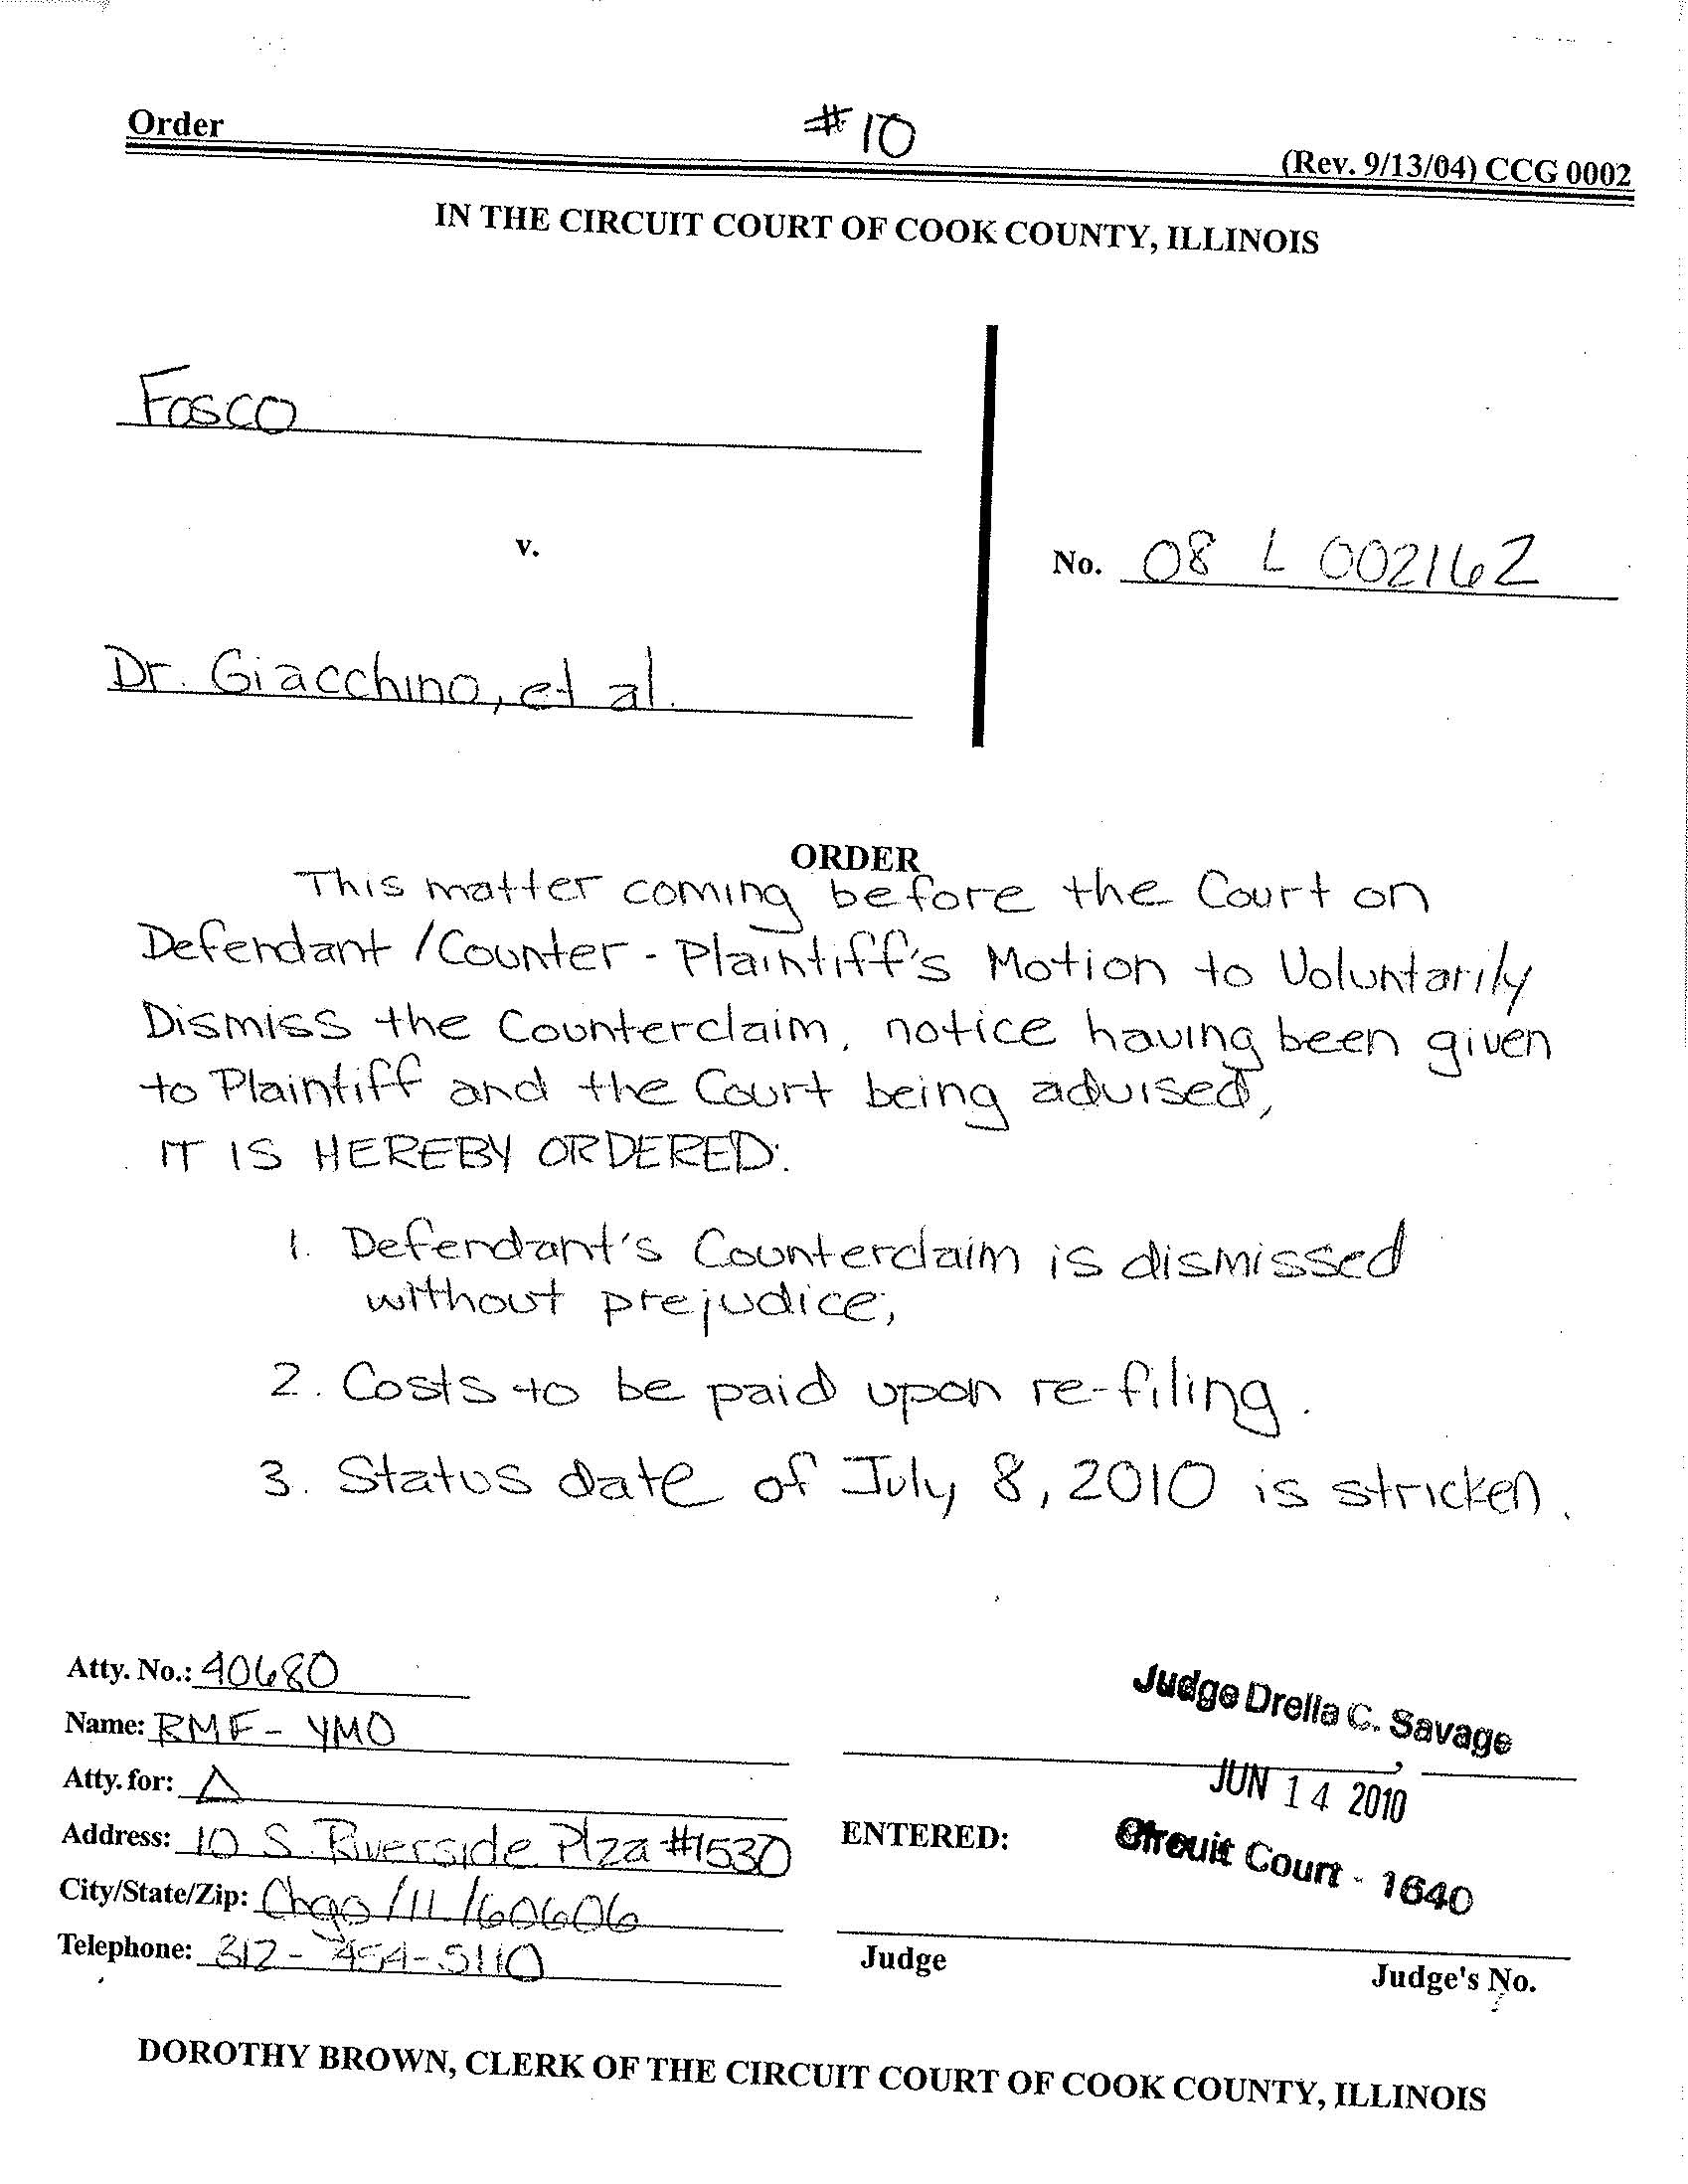 Order
#10
(Rev. 9/13/04) CCG 0002
IN THE CIRCUIT COURT OF COOK COUNTY, ILLINOIS
Fosco
v.
No. 08 L 002162
Dr. Giacchino, et al.
ORDER
This matter coming before the Court on
Defendant /Counter-Plaintiff's Motion to Voluntarily
Dismiss the Counterclaim, notice having been given
to Plaintiff and the Court being advised,
IT IS HEREBY ORDERED:
1. Defendant's Counterclaim is dismissed
without prejudice;
2. Costs to be paid upon re-filing.
3. Status date of July 8, 2010 is stricken.
Atty. No.: 40680
Name: RMF - YMO
Atty. for: Δ
Address: 10 S. Riverside Plza #1530
City/State/Zip: Chgo/IL/60606
Telephone: 312-454-5110
Judge Drella C. Savage
,
JUN 14 2010
ENTERED:
Circuit Court - 1640
Judge
Judge's No.
DOROTHY BROWN, CLERK OF THE CIRCUIT COURT OF COOK COUNTY, ILLINOIS